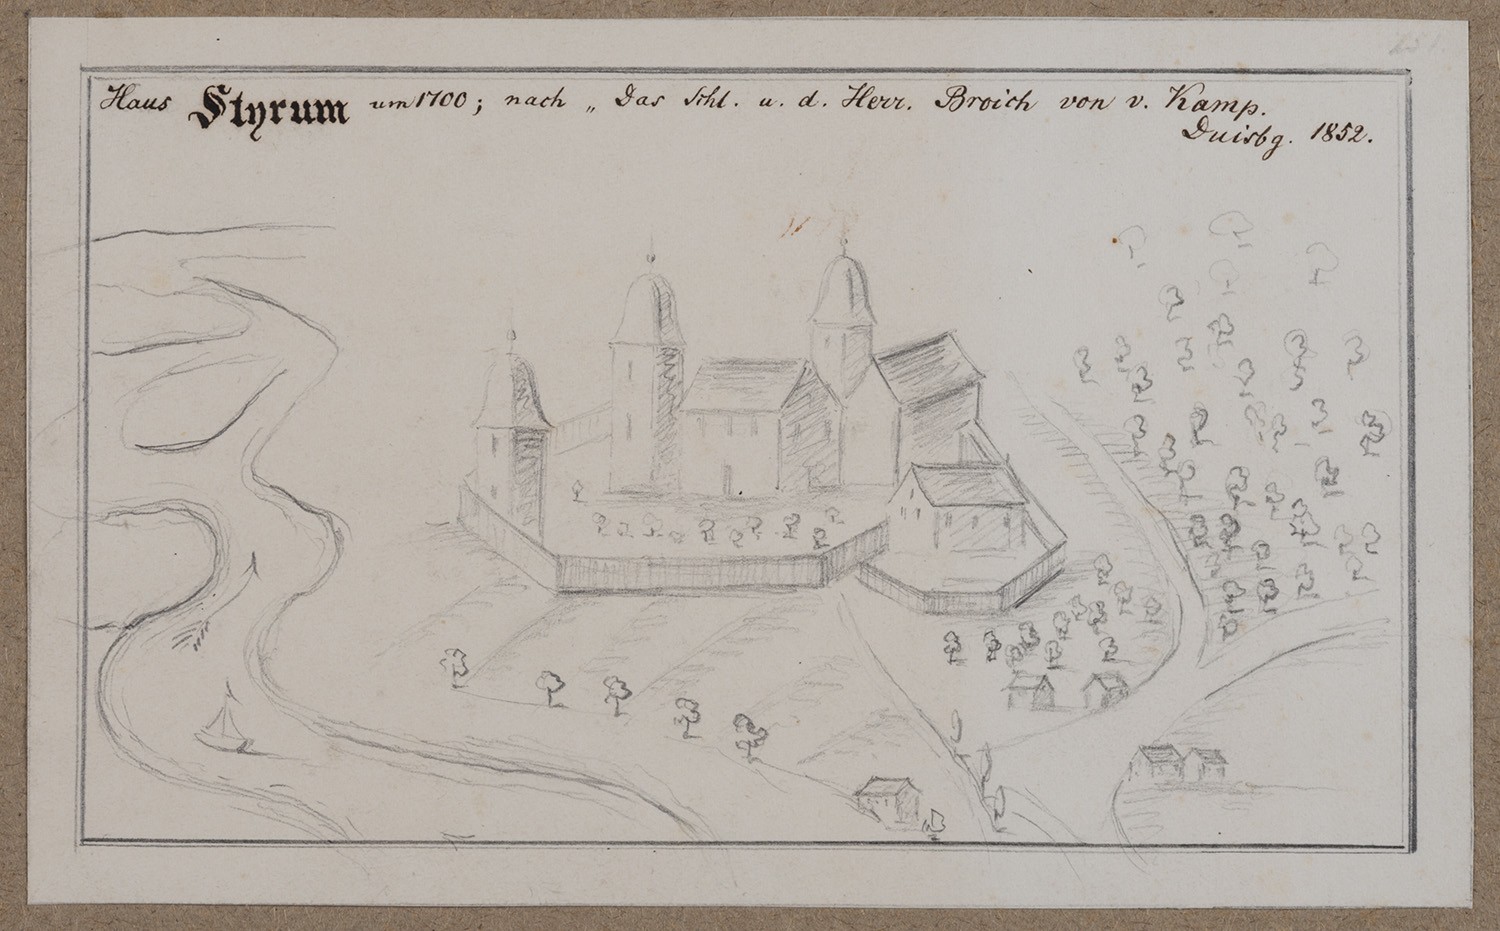 Haus Styrum um 1700; nach „Das Schl. u. d. Herr. Broich von v. Kamp.
Duisbg. 1852.